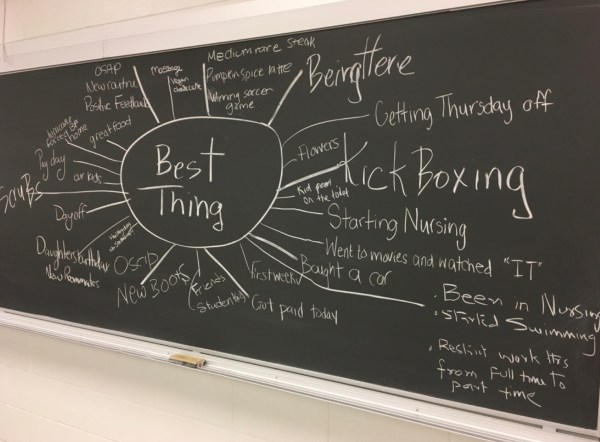 Best
Thing
OSAP
New routine
Positive Feedback
massage
vegan
chocolate
Medium rare steak
Pumpkin spice latte
Winning soccer
game
Being Here
Getting Thursday off
Flowers
Kick Boxing
Kid peed
on the toilet
Starting Nursing
Went to movies and watched "IT"
Bought a car
. Been in Nursing
. Started Swimming
. Restint work Hrs
from Full time to
part time
First week
Got paid today
Friends
Student
New Boots
OSAP
Daughters birthday
New Roommates
Day off
Scrubs
Pay day
car kids
home
great food